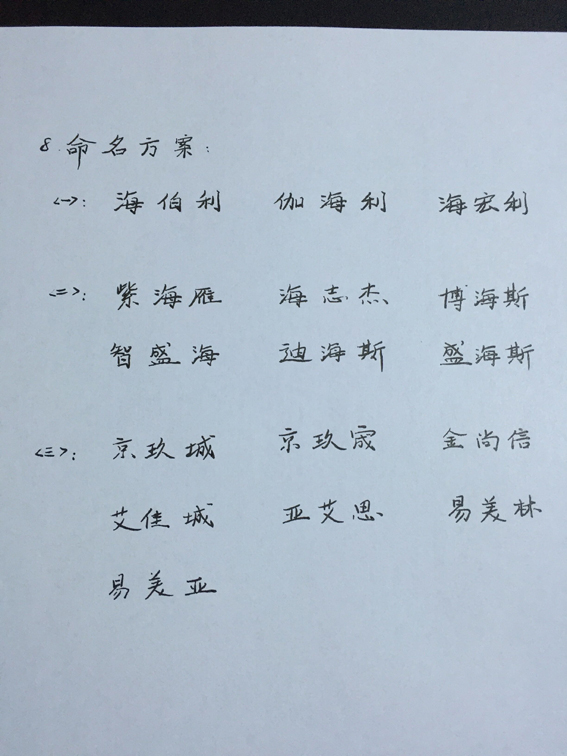 8.命名方案：
<一>：海伯利 伽海利 海宏利
<二>：紫海雁 海志杰 博海斯
智盛海 迪海斯 盛海斯
<三>：京玖城 京玖宬 金尚信
艾佳城 亚艾思 易美林
易美亚